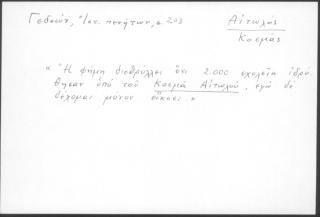 Γεδεών, Ἱστ. πενήτων, σ. 203
Αἰτωλὸς
Κοσμᾶς
« Ἡ φήμη διαθρυλλεῖ ὅτι 2.000 σχολεῖα ἱδρύ-
θησαν ὑπὸ τοῦ Κοσμᾶ Αἰτωλοῦ, ἐγὼ δὲ
δέχομαι μόνον εἴκοσι. »